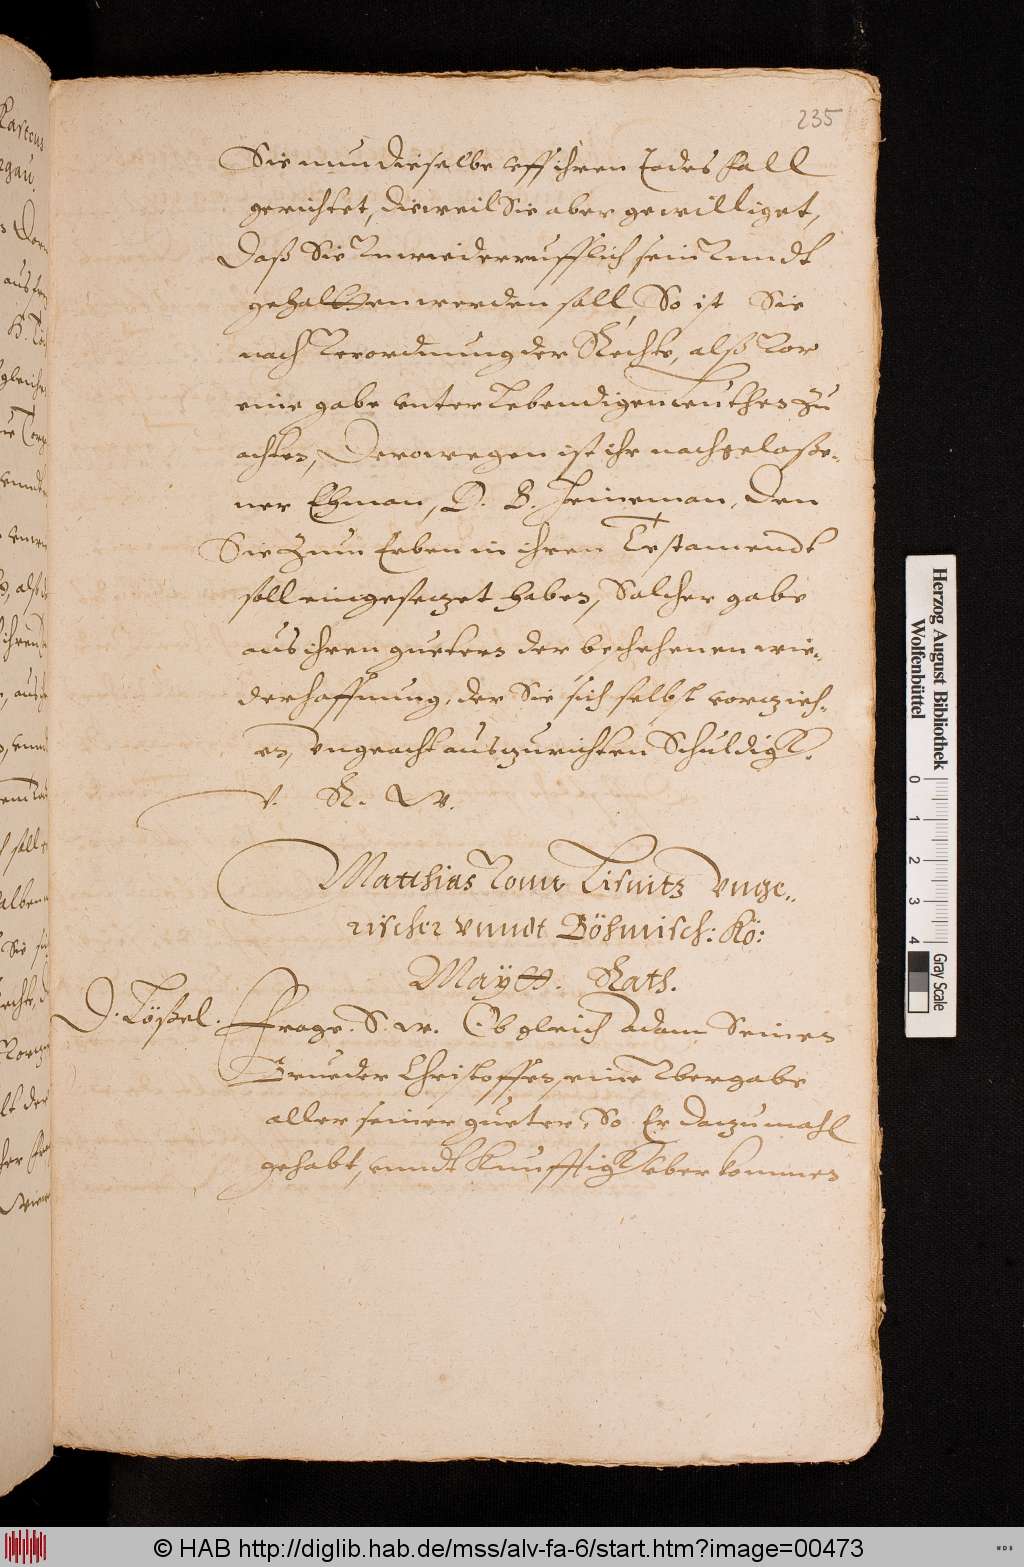 235
Sie nun dieselbe vff ihren Todes Fall
gerichtet, dieweil Sie aber gewilliget,
Daß Sie Vnwiederrufflich sein Vnndt
gehaltten werden soll, So ist Sie
nach Verordnung der Rechte, alß Vor
eine gabe vnter Lebendigen Leuthen zu
achten, Derowegen ist ihr nachgelaße-
ner Ehman, D. B. Heineman, den
Sie zum Erben in ihren Testamendt
soll eingesezet haben, Solcher gabe
aus ihren guetern der beschehenen wie-
derhoffnung, der Sie sich selbst vorzieh-
en, vngeacht auszurichten Schuldigk.
V. R. W.
Matthias Vonn Lisnitz Vnge-
rischer Vnndt Böhmisch: Kö:
Maytt. Rath.
D. Lößel.
Frage. S. w. Ob gleich Adam Seinen
Brueder Christoffen, eine Vbergabe
aller seiner gueter, So Er dazumahl
gehabt, vnndt Kunfftigk vberkommen
Herzog August Bibliothek
Wolfenbüttel
0 1 2 3 4
Gray Scale
© HAB http://diglib.hab.de/mss/alv-fa-6/start.htm?image=00473